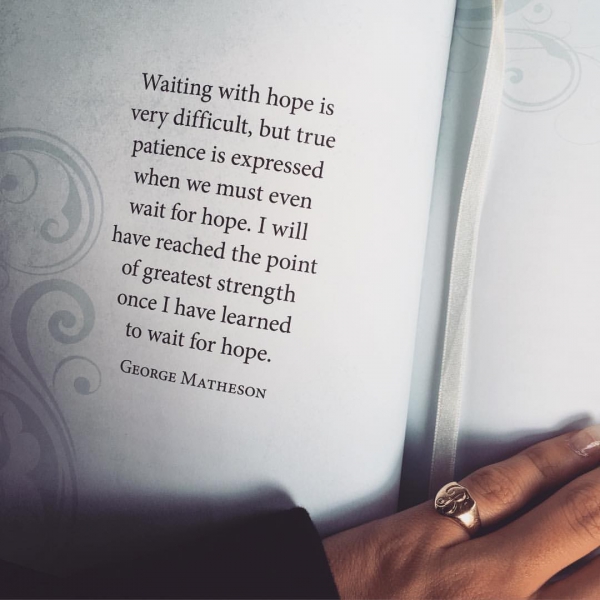 Waiting with hope is
very difficult, but true
patience is expressed
when we must even
wait for hope. I will
have reached the point
of greatest strength
once I have learned
to wait for hope.
George Matheson